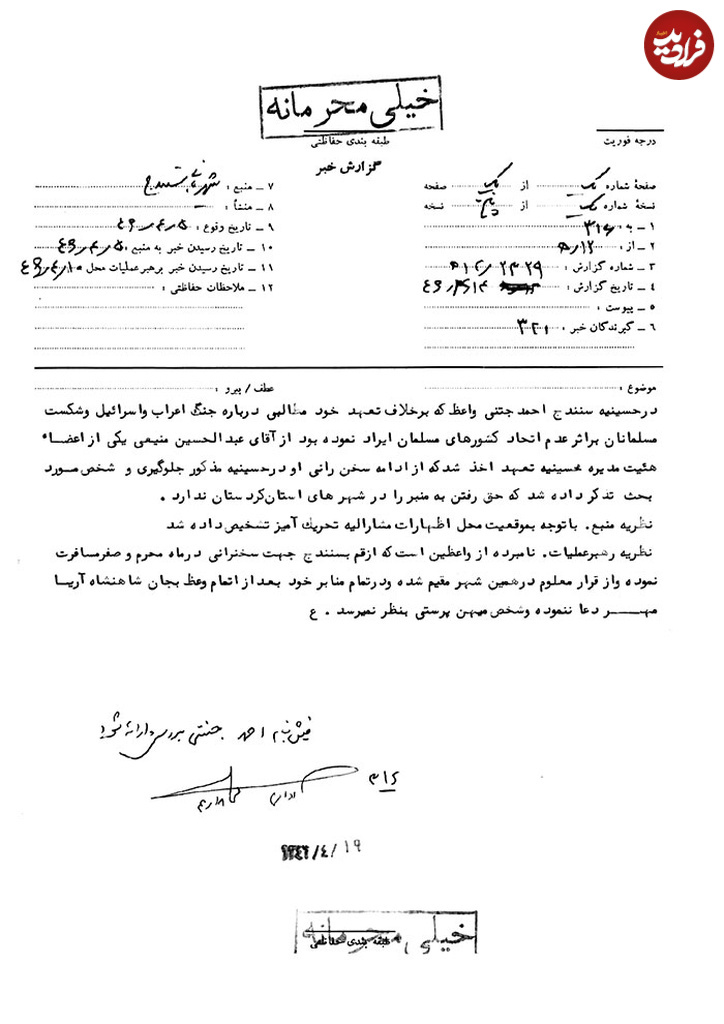 فرادید
خیلی محرمانه
طبقه بندی حفاظتی
درجه فوریت
گزارش خبر
صفحهٔ شماره یک از یک صفحه
نسخهٔ شماره یک از پنج نسخه
۱ ـ به : ۳۱۶
۲ ـ از : ۵/۱۲
۳ ـ شماره گزارش :
۴ ـ تاریخ گزارش :
۵ ـ پیوست :
۶ ـ گیرندگان خبر : ۳۲۱
۷ ـ منبع :
۸ ـ منشأ :
۹ ـ تاریخ وقوع : ۴۶/۴/۵
۱۰ ـ تاریخ رسیدن خبر به منبع : ۴۶/۴/۵
۱۱ ـ تاریخ رسیدن خبر برهبرعملیات محل ۴۶/۴/۱۰
۱۲ ـ ملاحظات حفاظتی :
موضوع :
عطف / پیرو :
درحسینیه سنندج احمدجنتی واعظ که برخلاف تعهد خود مطالبی درباره جنگ اعراب واسرائیل وشکست
مسلمانان براثرعدم اتحاد کشورهای مسلمان ایراد نموده بود از آقای عبدالحسین منیعی یکی از اعضاء
هئیت مدیره حسینیه تعهد اخذ شدکه از ادامه سخن رانی او درحسینیه مذکور جلوگیری و شخص مورد
بحث تذکر داده شد که حق رفتن به منبر را در شهر های استان کردستان ندارد .
نظریه منبع. با توجه بموقعیت محل اظهارات مشارالیه تحریک آمیز تشخیص داده شد
نظریه رهبرعملیات. نامبرده از واعظین است که ازقم بسنندج جهت سخنرانی درماه محرم و صفرمسافرت
نموده واز قرار معلوم درهمین شهر مقیم شده ودرتمام منابر خود بعد از اتمام وعظ بجان شاهنشاه آریا
مهر دعا ننموده وشخص میهن پرستی بنظر نمیرسد . ع
احمد جنتی بررسی و ارائه شود
۳۱۶
۱۳۴۶/۴/۱۹
خیلی محرمانه
طبقه بندی حفاظتی